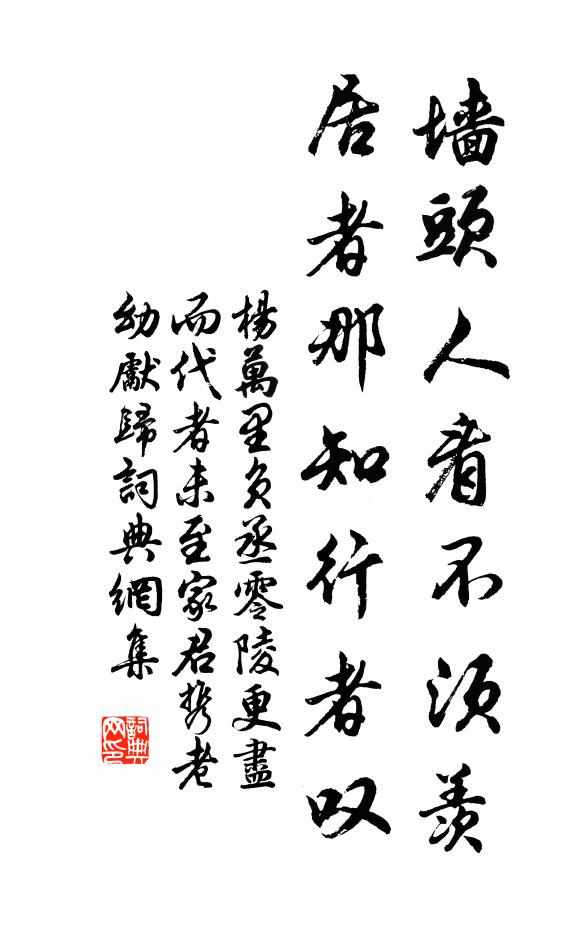 墙頭人看不須羨
居者那知行者叹
楊萬里負丞零陵更盡
而代者未至家君携老
幼獻歸詞典網集
詞典
网印